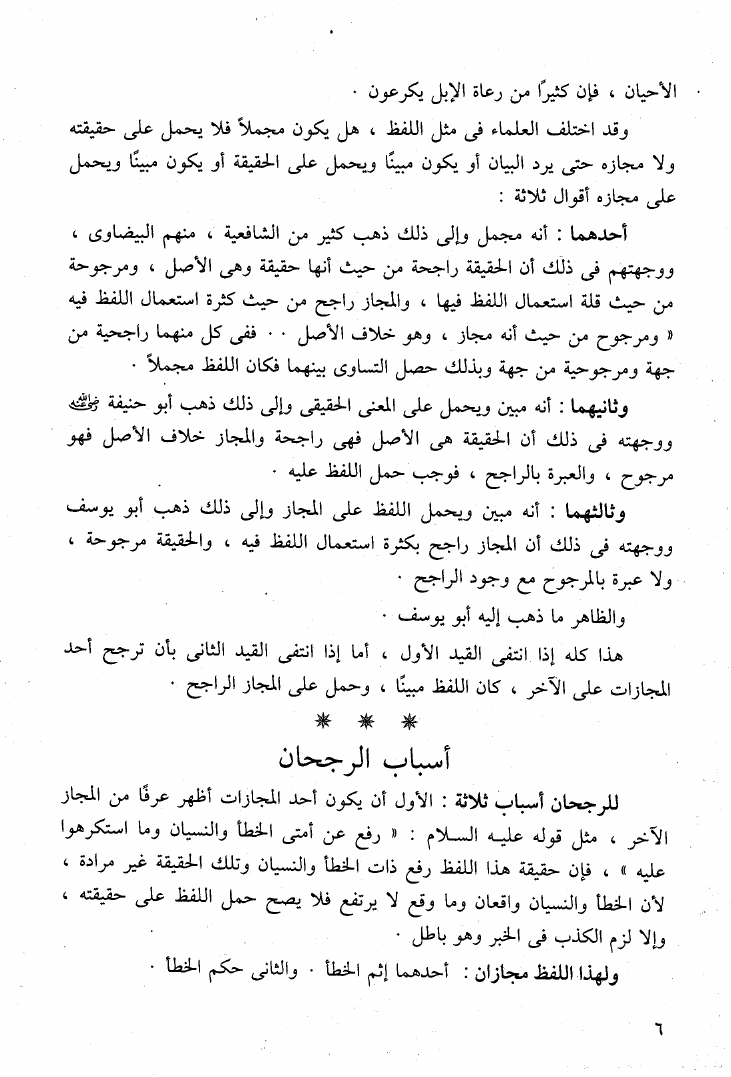 الأحيان ، فإن كثيرًا من رعاة الإبل يكرعون ٠
وقد اختلف العلماء فى مثل اللفظ ، هل يكون مجملاً فلا يحمل على حقيقته
ولا مجازه حتى يرد البيان أو يكون مبينًا ويحمل على الحقيقة أو يكون مبينًا ويحمل
على مجازه أقوال ثلاثة :
أحدهما : أنه مجمل وإلى ذلك ذهب كثير من الشافعية ، منهم البيضاوى ،
ووجهتهم فى ذلك أن الحقيقة راجحة من حيث أنها حقيقة وهى الأصل ، ومرجوحة
من حيث قلة استعمال اللفظ فيها ، والمجاز راجح من حيث كثرة استعمال اللفظ فيه
« ومرجوح من حيث أنه مجاز ، وهو خلاف الأصل ٠٠ ففى كل منهما راجحية من
جهة ومرجوحية من جهة وبذلك حصل التساوى بينهما فكان اللفظ مجملاً ٠
وثانيهما : أنه مبين ويحمل على المعنى الحقيقى وإلى ذلك ذهب أبو حنيفة رضي الله عنه
ووجهته فى ذلك أن الحقيقة هى الأصل فهى راجحة والمجاز خلاف الأصل فهو
مرجوح ، والعبرة بالراجح ، فوجب حمل اللفظ عليه ٠
وثالثهما : أنه مبين ويحمل اللفظ على المجاز وإلى ذلك ذهب أبو يوسف
ووجهته فى ذلك أن المجاز راجح بكثرة استعمال اللفظ فيه ، والحقيقة مرجوحة ،
ولا عبرة بالمرجوح مع وجود الراجح ٠
والظاهر ما ذهب إليه أبو يوسف ٠
هذا كله إذا انتفى القيد الأول ، أما إذا انتفى القيد الثانى بأن ترجح أحد
المجازات على الآخر ، كان اللفظ مبينًا ، وحمل على المجاز الراجح ٠
أسباب الرجحان
للرجحان أسباب ثلاثة : الأول أن يكون أحد المجازات أظهر عرفًا من المجاز
الآخر ، مثل قوله عليه السلام : « رفع عن أمتى الخطأ والنسيان وما استكرهوا
عليه » ، فإن حقيقة هذا اللفظ رفع ذات الخطأ والنسيان وتلك الحقيقة غير مرادة ،
لأن الخطأ والنسيان واقعان وما وقع لا يرتفع فلا يصح حمل اللفظ على حقيقته ،
وإلا لزم الكذب فى الخبر وهو باطل ٠
ولهذا اللفظ مجازان : أحدهما إثم الخطأ ٠ والثانى حكم الخطأ ٠
٦